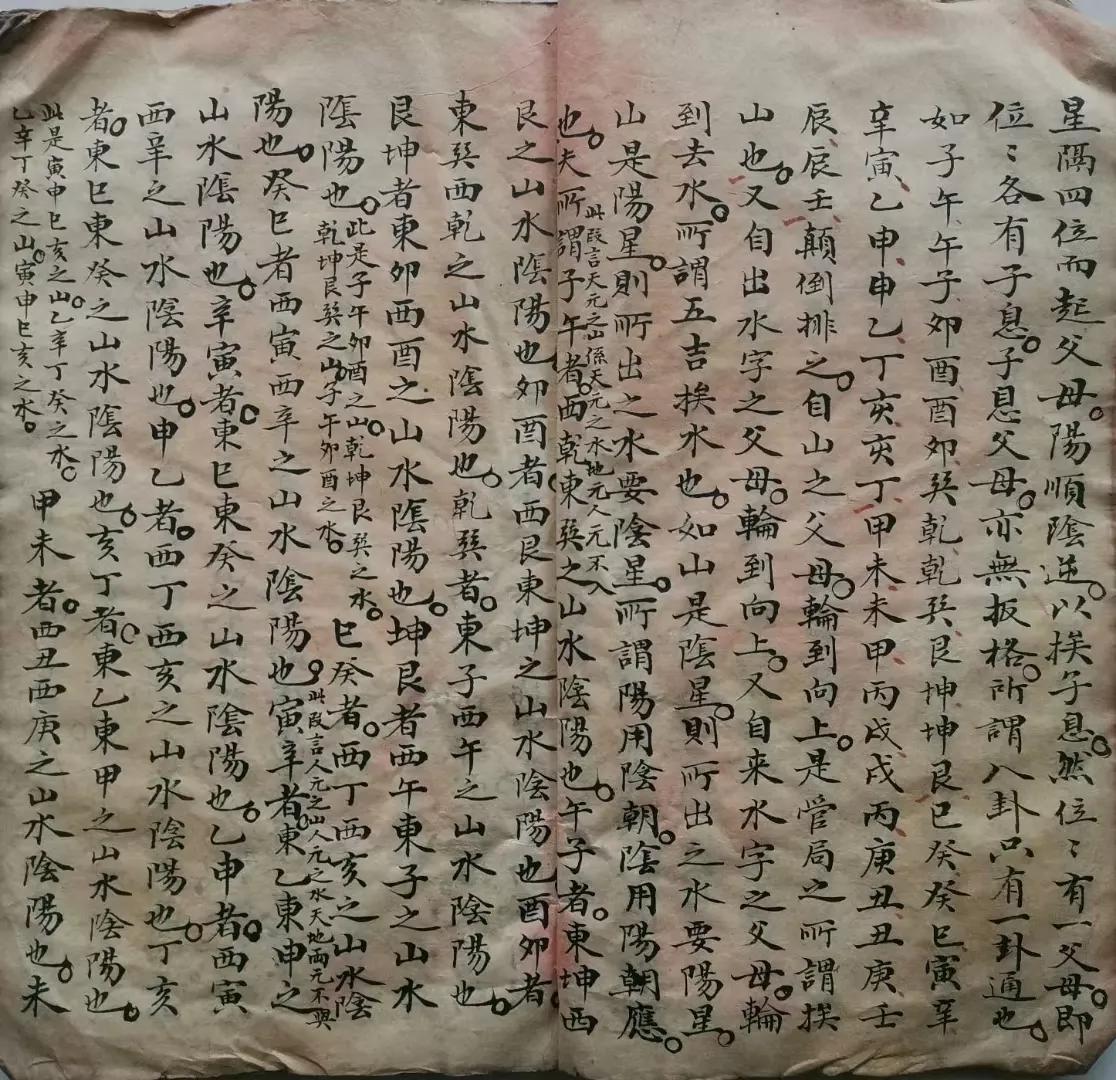 星隔四位而起父母。陽順陰逆。以挨子息。然位〻有一父母。即
位〻各有子息。子息父母。亦無扳格。所謂八卦只有一卦通也。
如子午、午子、卯酉、酉卯、巽乾、乾巽、艮坤、坤艮、巳癸、癸巳、寅辛
辛寅、乙申、申乙、丁亥、亥丁、甲未、未甲、丙戌、戌丙、庚丑、丑庚、壬
辰、辰壬、顛倒排之。自山之父母。輪到向上。是管局之所謂挨
山也。又自出水字之父母。輪到向上。又自来水字之父母。輪
到去水。所謂五吉挨水也。如山是陰星。則所出之水要陽星。
山是陽星。則所出之水要陰星。所謂陽用陰朝。陰用陽朝應。
也。此段言天元之山係天元之水地元人元不入夫所謂子午者。西乾東巽之山水陰陽也。午子者。東坤西
艮之山水陰陽也卯酉者。西艮東坤之山水陰陽也酉卯者。
東巽西乾之山水陰陽也。乾巽者。東子西午之山水陰陽也。
艮坤者東卯西酉之山水陰陽也。坤艮者西午東子之山水
陰陽也。此是子午卯酉之山。乾坤艮巽之水。乾坤艮巽之山子午卯酉之水。巳癸者。西丁西亥之山水陰
陽也。癸巳者西寅西辛之山水陰陽也。此段言人元之山人元之水天地兩元不與寅辛者。東乙東申之
山水陰陽也。辛寅者。東巳東癸之山水陰陽也。乙申者。西寅
西辛之山水陰陽也。申乙者。西丁西亥之山水陰陽也。丁亥
者。東巳東癸之山水陰陽也。亥丁者。東乙東甲之山水陰陽也。
此是寅申巳亥之山。乙辛丁癸之水。乙辛丁癸之山。寅申巳亥之水。甲未者。西丑西庚之山水陰陽也。未